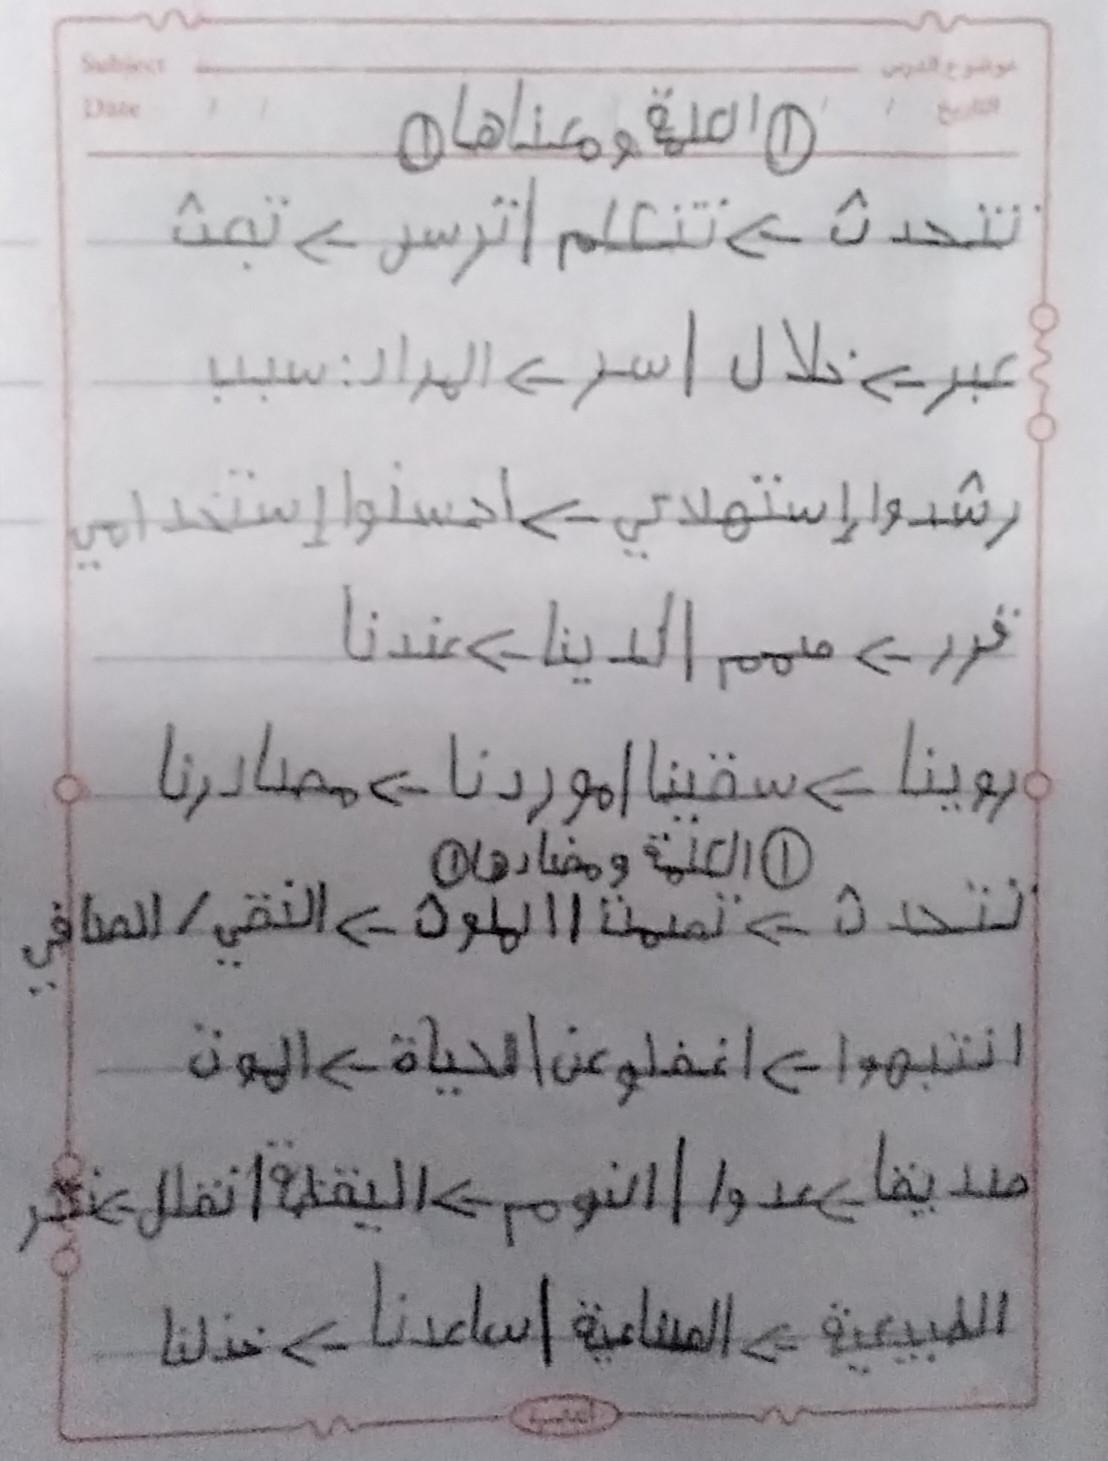 Subject موضوع الدرس
Date / / / / التاريخ
① الكلمة ومعناها ①
تتحدث -> تتكلم | ترسم -> تبعث
عبر -> خلال | سر -> المراد: سبب
رشدوا إستهلاكي -> احسنوا إستخدامي
قرر -> صمم | لدينا -> عندنا
روينا -> سقينا | موردنا -> مصادرنا
① الكلمة ومضادها ①
تتحدث -> تصمت | الملوث -> النقي / الصافي
انتبهوا -> اغفلو عن | الحياة -> الموت
صديقا -> عدوا | النوم -> اليقظة | تقلل -> تكثر
الطبيعية -> الصناعية | ساعدنا -> خذلنا